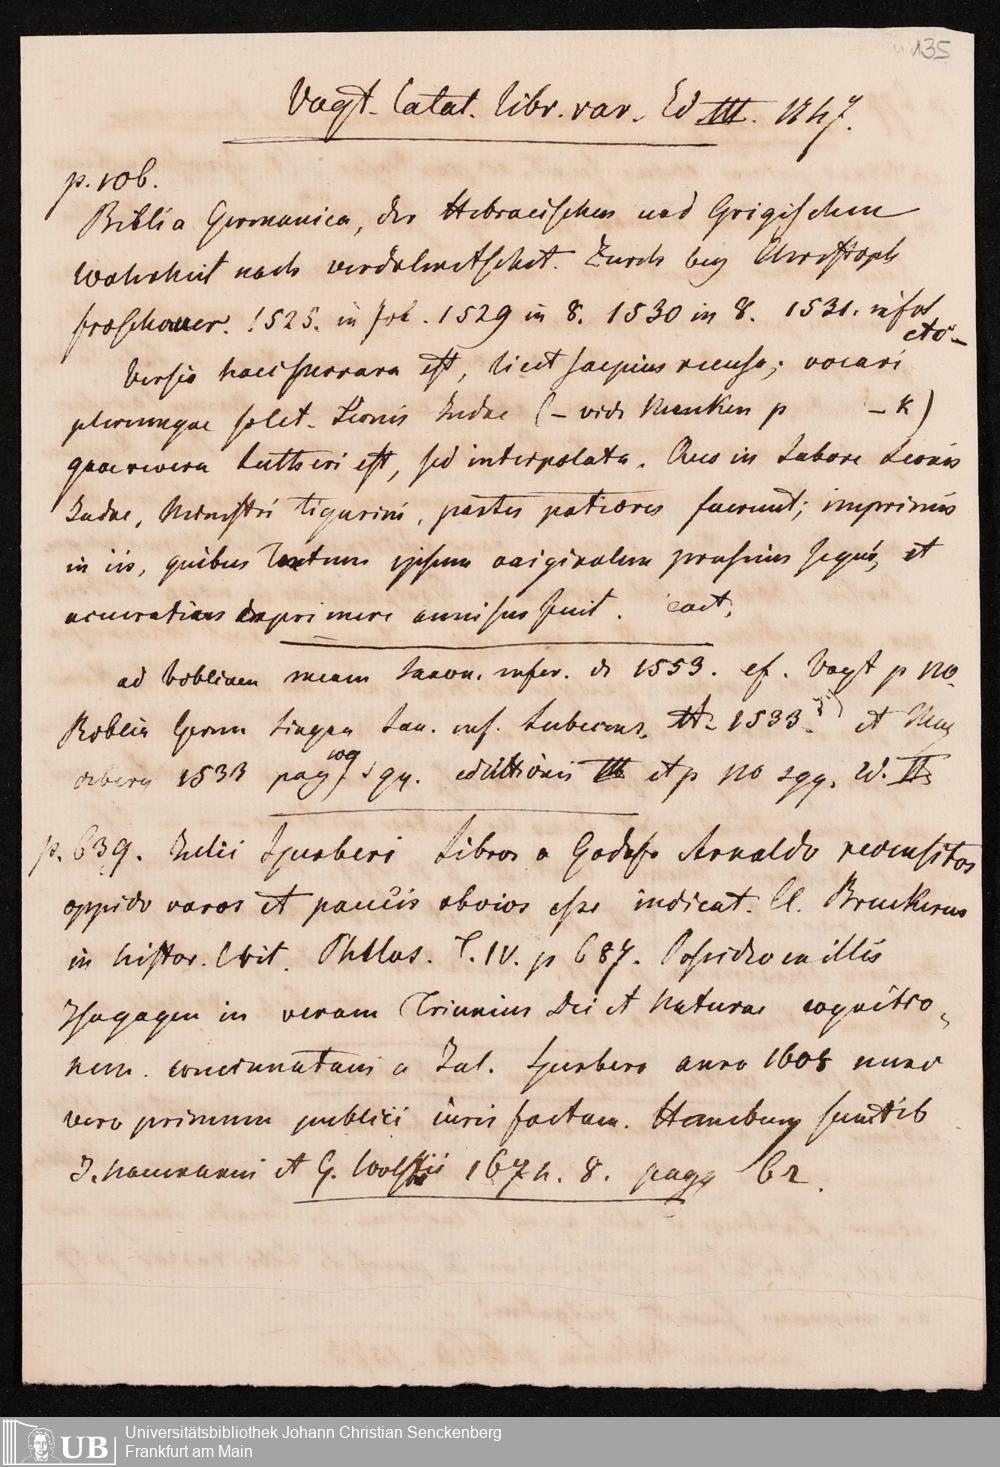 135
Vogt. Catal. libr. rar. Ed III. 1747.
p. 106.
Biblia Germanica, der Hebraeischen und Grigischen
Wahrheit nach verdolmetschet. Zurch bey Christoph
froschouer. 1525. in fol. 1529 in 8. 1530 in 8. 1531. in fol
etc.
Versio haec perrara est, licet saepius recusa; vocari
plerumque solet Leonis Judae (– vide Menken p – k)
quae revera Lutheri est, sed interpolata. Quo in Labore Leonis
Judae, Ministri Tigurini, partes potiores fuerunt; imprimis
in iis, quibus Textum ipsum originalem pressius sequi, et
accuratius exprimere annisus fuit.
ad Bibliam meam Saxon. infer. de 1553. cf. Vogt p 110.
Biblia Germ Lingua Sax. inf. Lubecens. 1533. et Mag
deburg 1533 pag 109 sqq. edittionis III et p 110 sqq. Ed. II
p. 639. Julii Sperberi Libros a Godofr Arnaldo recensitos
oppido raros et paucis obvios esse indicat. Cl. Bruckerus
in histor. Crit. Philos. T. IV. p 687. Possideo ex illis
Isagogen in veram Triunius Dei et Naturae cognitio-
nem. concinnatam a Jul. Sperbero anno 1608 nunc
vero primum publici iuris factam. Hamburg sumtib
J. Naumanni et G. Wolffii 1674. 8. pagg 62.
Universitätsbibliothek Johann Christian Senckenberg
Frankfurt am Main
UB